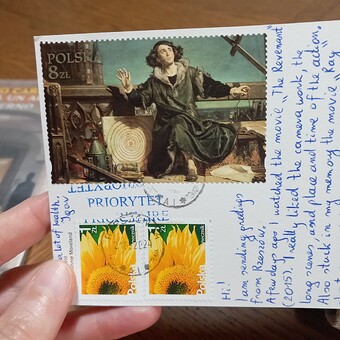 POLSKA
8ZŁ
PRIORYTET
PRIORITAIRE
1
ZŁ
Polska
1
ZŁ
Polska
Hi!
I am sending greetings
from Rzeszów.
A few days ago I watched the movie "The Revenant"
(2015). I really liked the camera work, the
long scenes, and place and time of the action.
Also stuck in my memory the movie "Ray"
a lot of health.
Igor